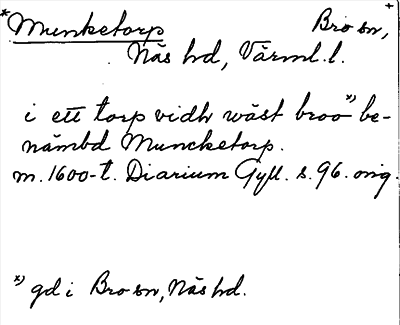 *Munketorp Bro sn, +
Näs hd, Värml.l.
i ett torp vidh wäst broo*) be-
nämbd Muncketorp.
m. 1600-t. Diarium Gyll. s. 96. orig.
*) gd i Bro sn, Näs hd.